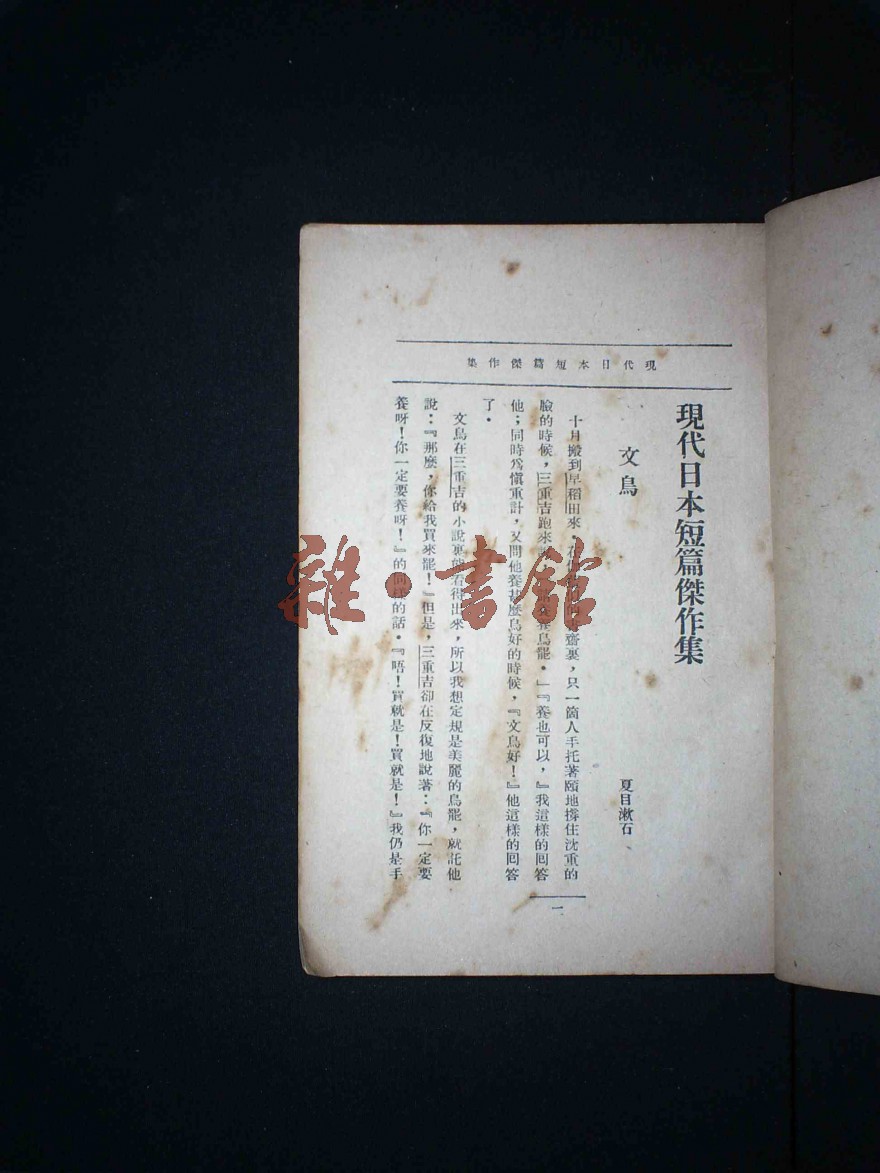 現代日本短篇傑作集
現代日本短篇傑作集
文鳥
夏目漱石
十月搬到早稻田來・在 齋裏，只一箇人手托著頤地撐住沈重的
臉的時候，三重吉跑來 養鳥罷・」『養也可以，』我這樣的回答
他；同時爲愼重計，又問他養甚麼鳥好的時候，『文鳥好！』他這樣的回答
了・
文鳥在三重吉的小說裏 看得出來，所以我想定規是美麗的鳥罷，就託他
說：『那麼，你給我買來罷！』但是，三重吉卻在反復地說著：『你一定要
養呀！你一定要養呀！』的同樣的話・『唔！買就是！買就是！』我仍是手
一
雜・書館